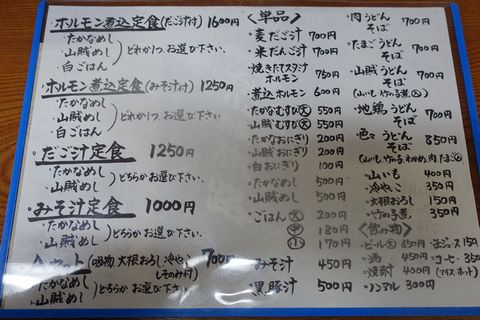 ・ホルモン煮込定食(だご汁付) 1600円
・たかなめし
・山賊めし
・白ごはん
どれか1つ、お選び下さい。
・ホルモン煮込定食(みそ汁付) 1250円
・たかなめし
・山賊めし
・白ごはん
どれか1つ、お選び下さい
・だご汁定食 1250円
・たかなめし
・山賊めし
どちらかお選び下さい。
・みそ汁定食 1000円
・たかなめし
・山賊めし
どちらかお選び下さい。
セット(吸物、大根おろし、冷やっこ
そのみ付) 700円
・たかなめし
・山賊めし
どちらかお選び下さい。
<単品>
・麦だんご汁 700円
・米だんご汁 700円
・焼きたてスタミナ
ホルモン 750円
・煮込ホルモン 600円
・たかなむすび(大) 550円
・山賊むすび(大) 550円
・たかなおにぎり 200円
・山賊おにぎり 200円
・白おにぎり 100円
・たかなめし 500円
・山賊めし 500円
・ごはん(大) 200円
(中) 180円
(小) 170円
・みそ汁 450円
・黒豚汁 500円
・肉うどん
そば 700円
・たまごうどん
そば 700円
・山賊うどん
そば 700円
・地鶏うどん
そば 700円
・色々うどん
そば 850円
・山いも 400円
・冷やっこ 350円
・大根おろし 150円
・竹の子煮 350円
<飲み物>
・ビール(大) 650円
・缶ジュース 150円
・酒 450円
・コーヒー 350円
・焼酎 400円
(アイス・ホット)
・ノンアル 300円